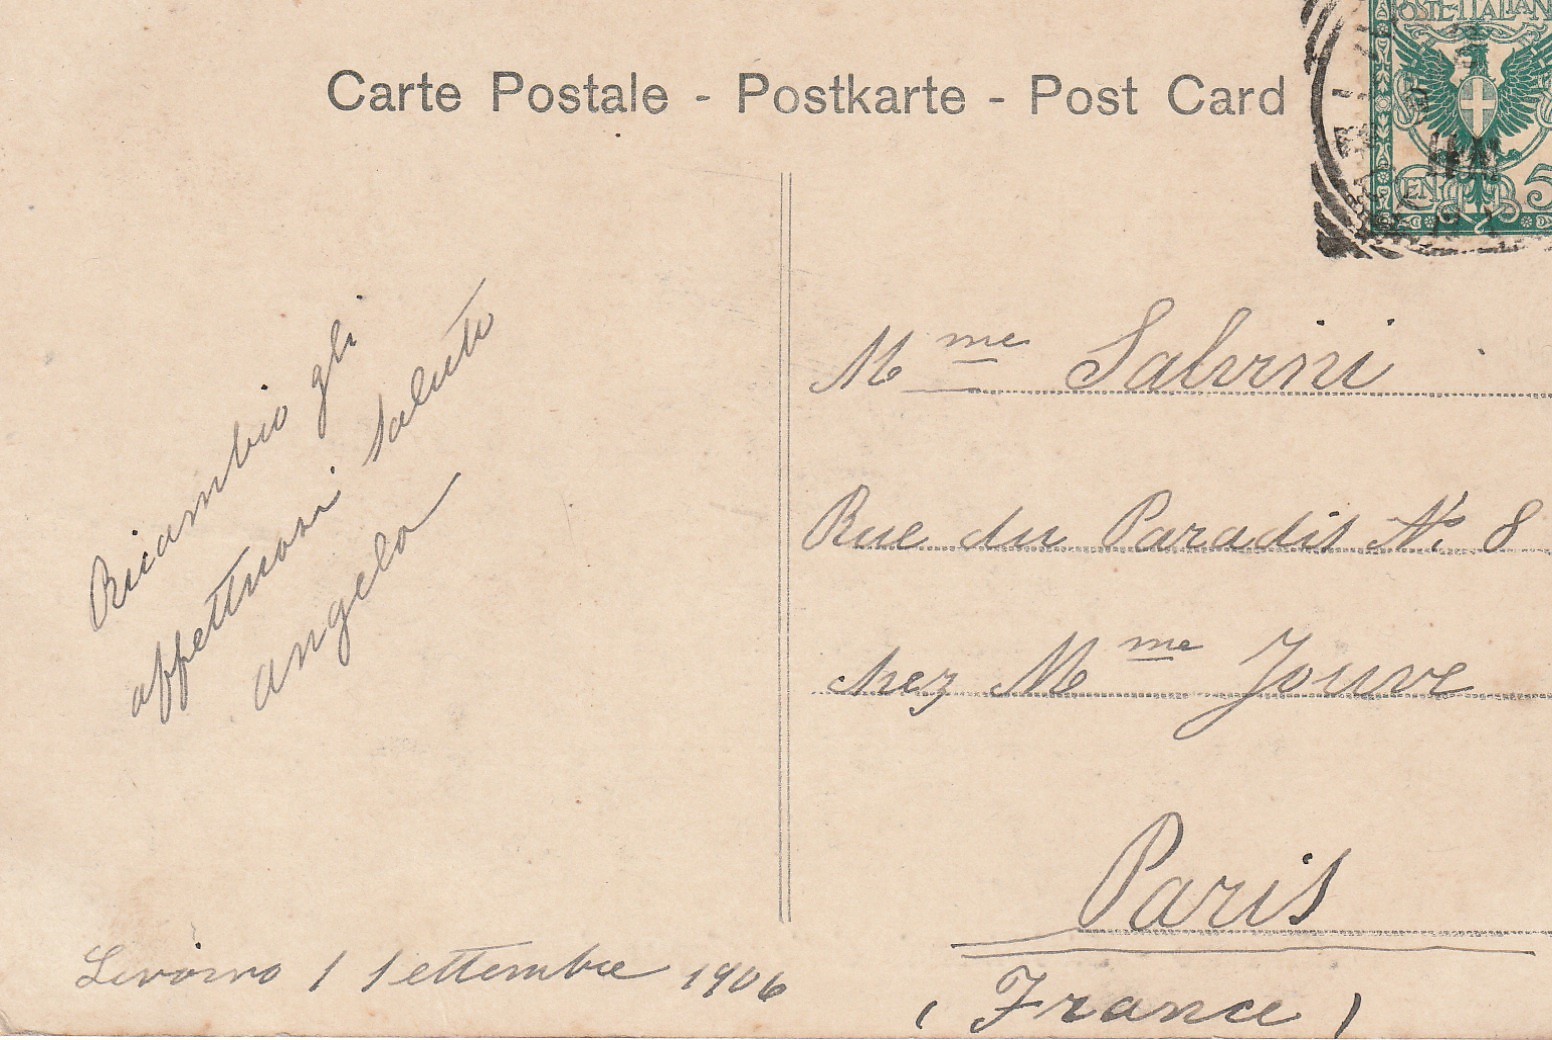 Carte Postale - Postkarte - Post Card
POSTE ITALIANE
CEN 5
Ricambio gli
affettuosi saluti
Angelo
Livorno 1 Settembre 1906
Mme Salvini
Rue du Paradis No. 8
chez Mme Jouve
Paris
(France)